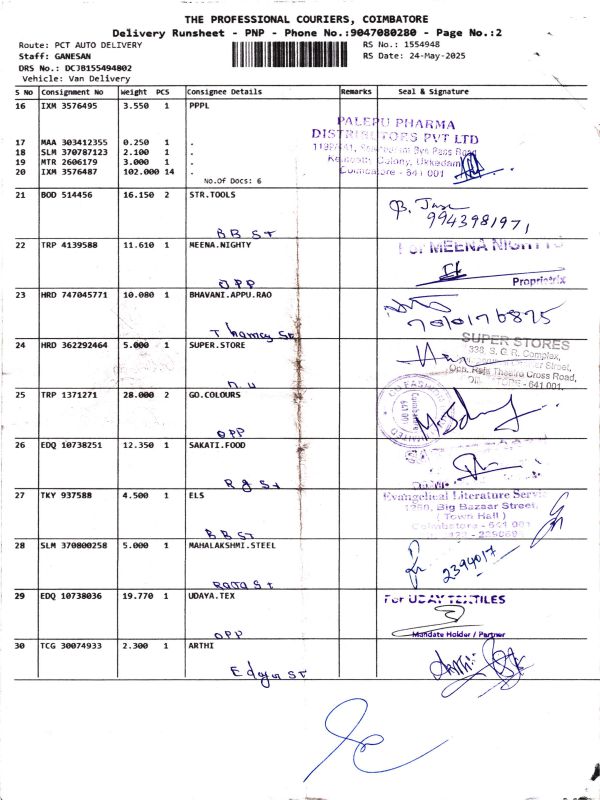 THE PROFESSIONAL COURIERS, COIMBATORE
Delivery Runsheet - PNP - Phone No.:9047080280 - Page No.:2
Route: PCT AUTO DELIVERY RS No.: 1554948
Staff: GANESAN RS Date: 24-May-2025
DRS No.: DCJB155494802
Vehicle: Van Delivery
S NO Consignment No Weight PCS Consignee Details Remarks Seal & Signature
16 IXM 3576495 3.550 1 PPPL
PALEPU PHARMA
DISTRIBUTORS PVT LTD
17 MAA 303412355 0.250 1 .
18 SLM 370787123 2.100 1 .
19 MTR 2606179 3.000 1 .
20 IXM 3576487 102.000 14 .
Colony, Ukkadam
Coimbatore - 641 001
No.Of Docs: 6
21 BOD 514456 16.150 2 STR.TOOLS
9943981971
B B St
22 TRP 4139588 11.610 1 MEENA.NIGHTY
For MEENA NIGHTYS
OPP
Proprietrix
23 HRD 747045771 10.080 1 BHAVANI.APPU.RAO
24 HRD 362292464 5.000 1 SUPER.STORE
SUPER STORES
336, S. G. R. Complex,
Opp. Raja Theatre Cross Road,
- 641 001.
25 TRP 1371271 28.000 2 GO.COLOURS
OPP
26 EDQ 10738251 12.350 1 SAKATI.FOOD
R g St
27 TKY 937588 4.500 1 ELS
Evangelical Literature Service
1260, Big Bazaar Street,
( Town Hall )
Coimbatore - 641 001
B B St
28 SLM 370800258 5.000 1 MAHALAKSHMI.STEEL
2394017
Raja St
29 EDQ 10738036 19.770 1 UDAYA.TEX
For UDAY TEXTILES
OPP
Mandate Holder / Partner
30 TCG 30074933 2.300 1 ARTHI